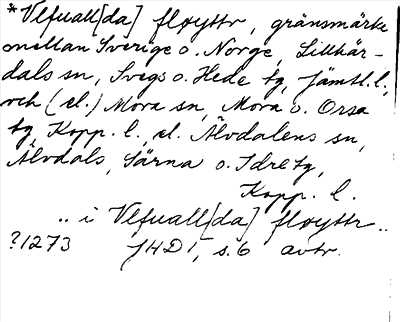 *Vlfuall[da] fløyttr, gränsmärke
mellan Sverige o. Norge, Lillhär-
dals sn, Svegs o. Hede tg, Jämtl. l.,
och (el.) Mora sn, Mora o. Orsa
tg, Kopp. l., el. Älvdalens sn,
Älvdals, Särna o. Idre tg,
Kopp. l.
.. i Vlfuall[da] fløyttr ..
?1273 JHD I, s. 6 avtr.